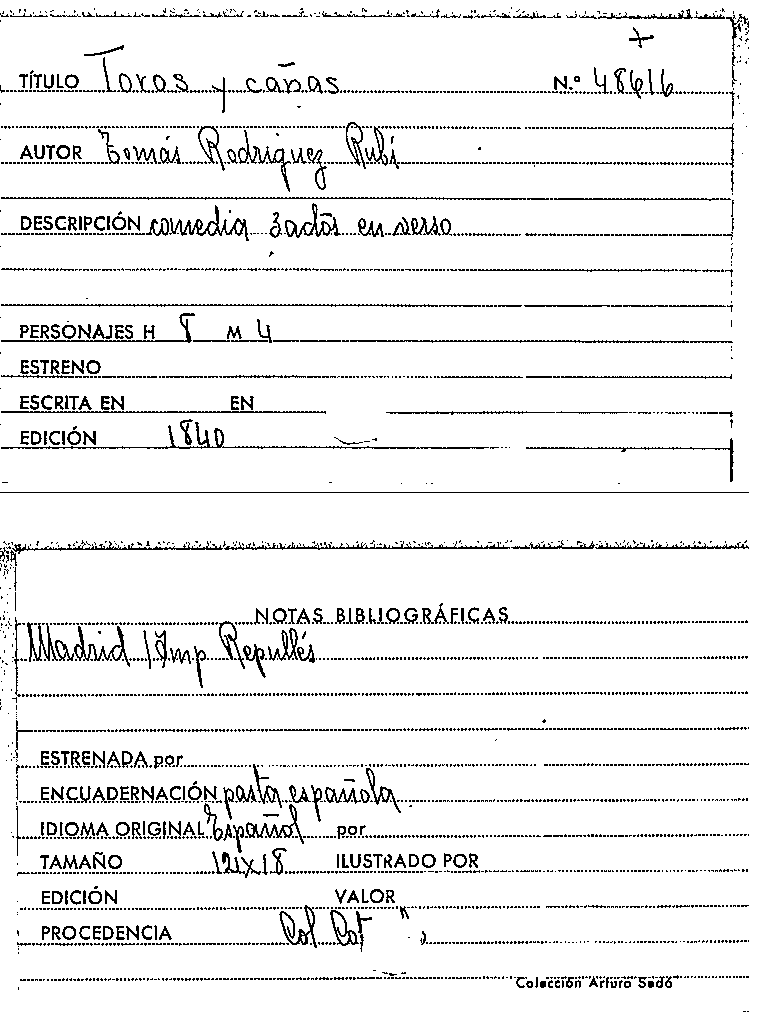 +
TÍTULO Toros y cañas N.º 48616
AUTOR Tomás Rodriguez Rubí
DESCRIPCIÓN comedia 3 actos en verso
PERSONAJES H 8 M 4
ESTRENO
ESCRITA EN EN
EDICIÓN 1840
NOTAS BIBLIOGRÁFICAS
Madrid / Imp Repullés
ESTRENADA por
ENCUADERNACIÓN pasta española
IDIOMA ORIGINAL Español por
TAMAÑO ILUSTRADO POR
EDICIÓN VALOR
PROCEDENCIA Col Cot
Colección Arturo Sedó